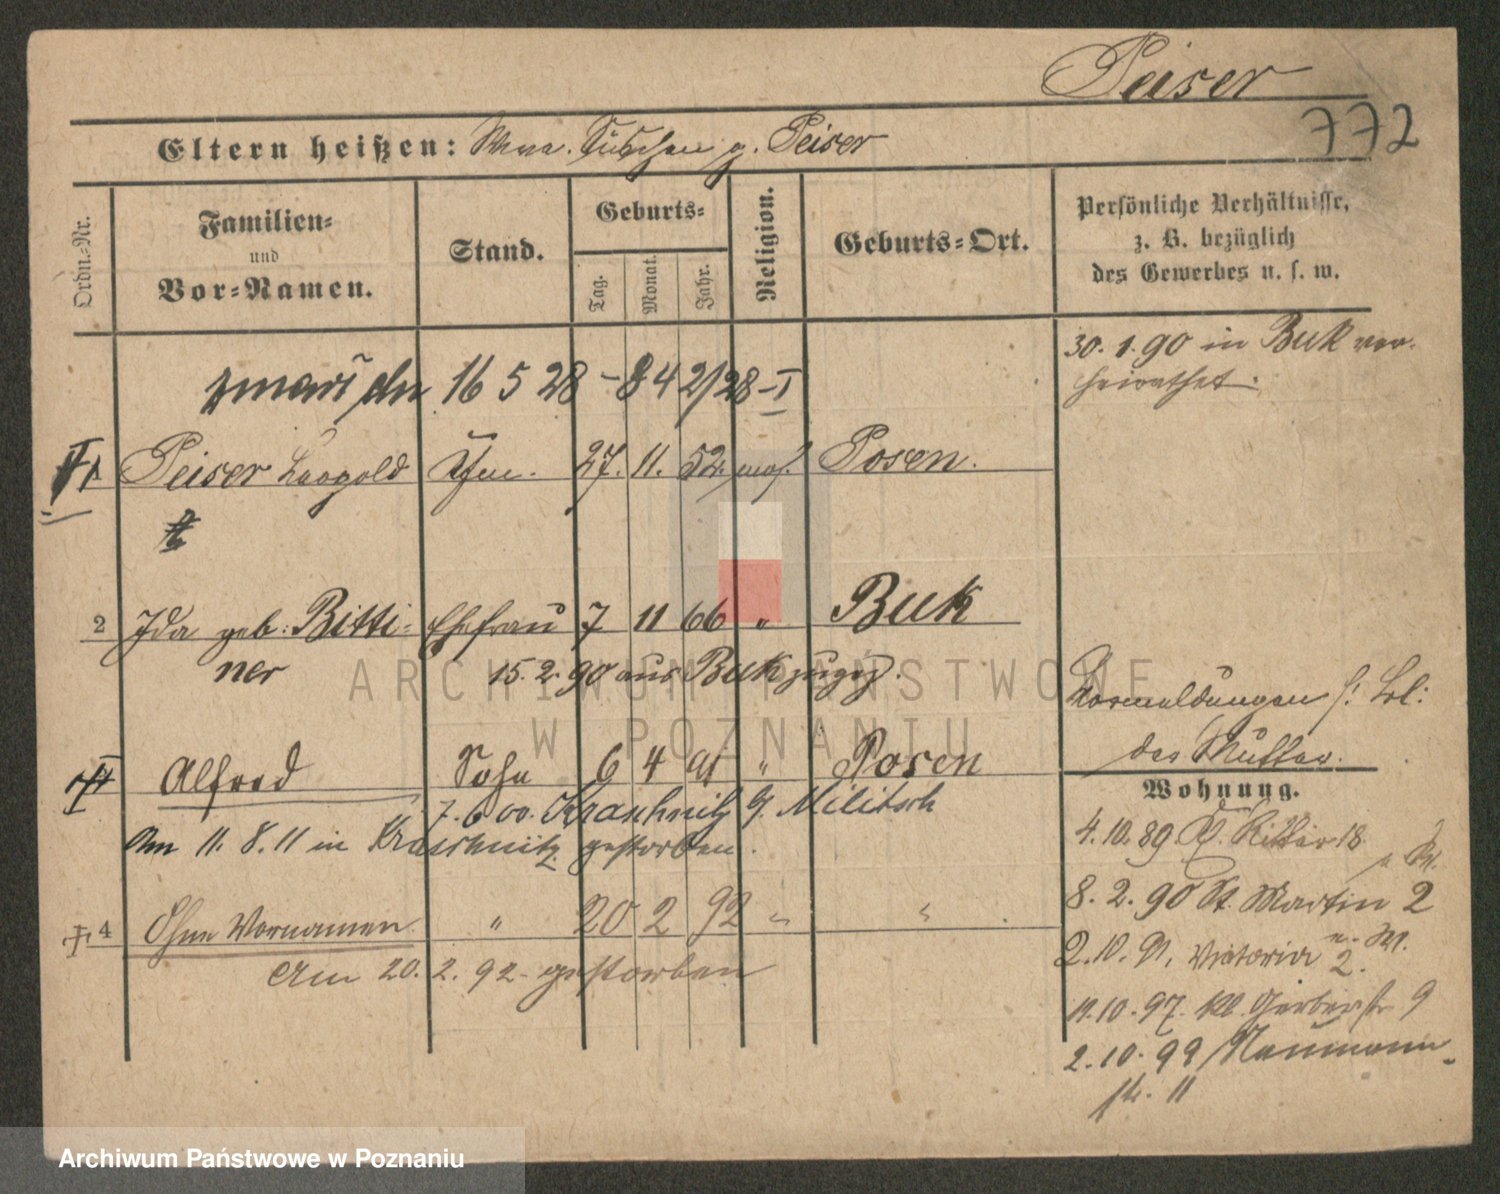 Peiser
772
Eltern heißen: Wwe. g. Peiser
Ordn.-Nr.
Familien-
und
Vor-Namen.
Stand.
Geburts-
Tag.
Monat.
Jahr.
Religion.
Geburts-Ort.
Persönliche Verhältnisse,
z. B. bezüglich
des Gewerbes u. s. w.
30. 1. 90 in Buk ver-
heirathet.
zmarł dn 16 5 28 - 842/28 - I
1 Peiser Leopold Kfm. 27. 11. 52. mos. Posen.
2 Ida geb: Bitti- Ehefrau 7 11 66 " Buk
ner 15. 2. 90 aus Buk zugez.
Alfred Sohn 6 4 91 " Posen
7. 6 00. Kraschnitz Militsch
Am 11. 8. 11 in Kraschnitz gestorben.
4 Ohne Vornamen " 20 2 92 " "
Am 20. 2. 92 gestorben
Vormeldungen s. bei:
der Mutter.
Wohnung.
4. 10. 89 Ritter 18
8. 2. 90 St. Martin 2
2. 10. 91, Viktoria 2.
11. 10. 97. kl. Gerberstr 9
2. 10. 99 Naumann-
str. 11
ARCHIWUM PAŃSTWOWE
W POZNANIU
Archiwum Państwowe w Poznaniu